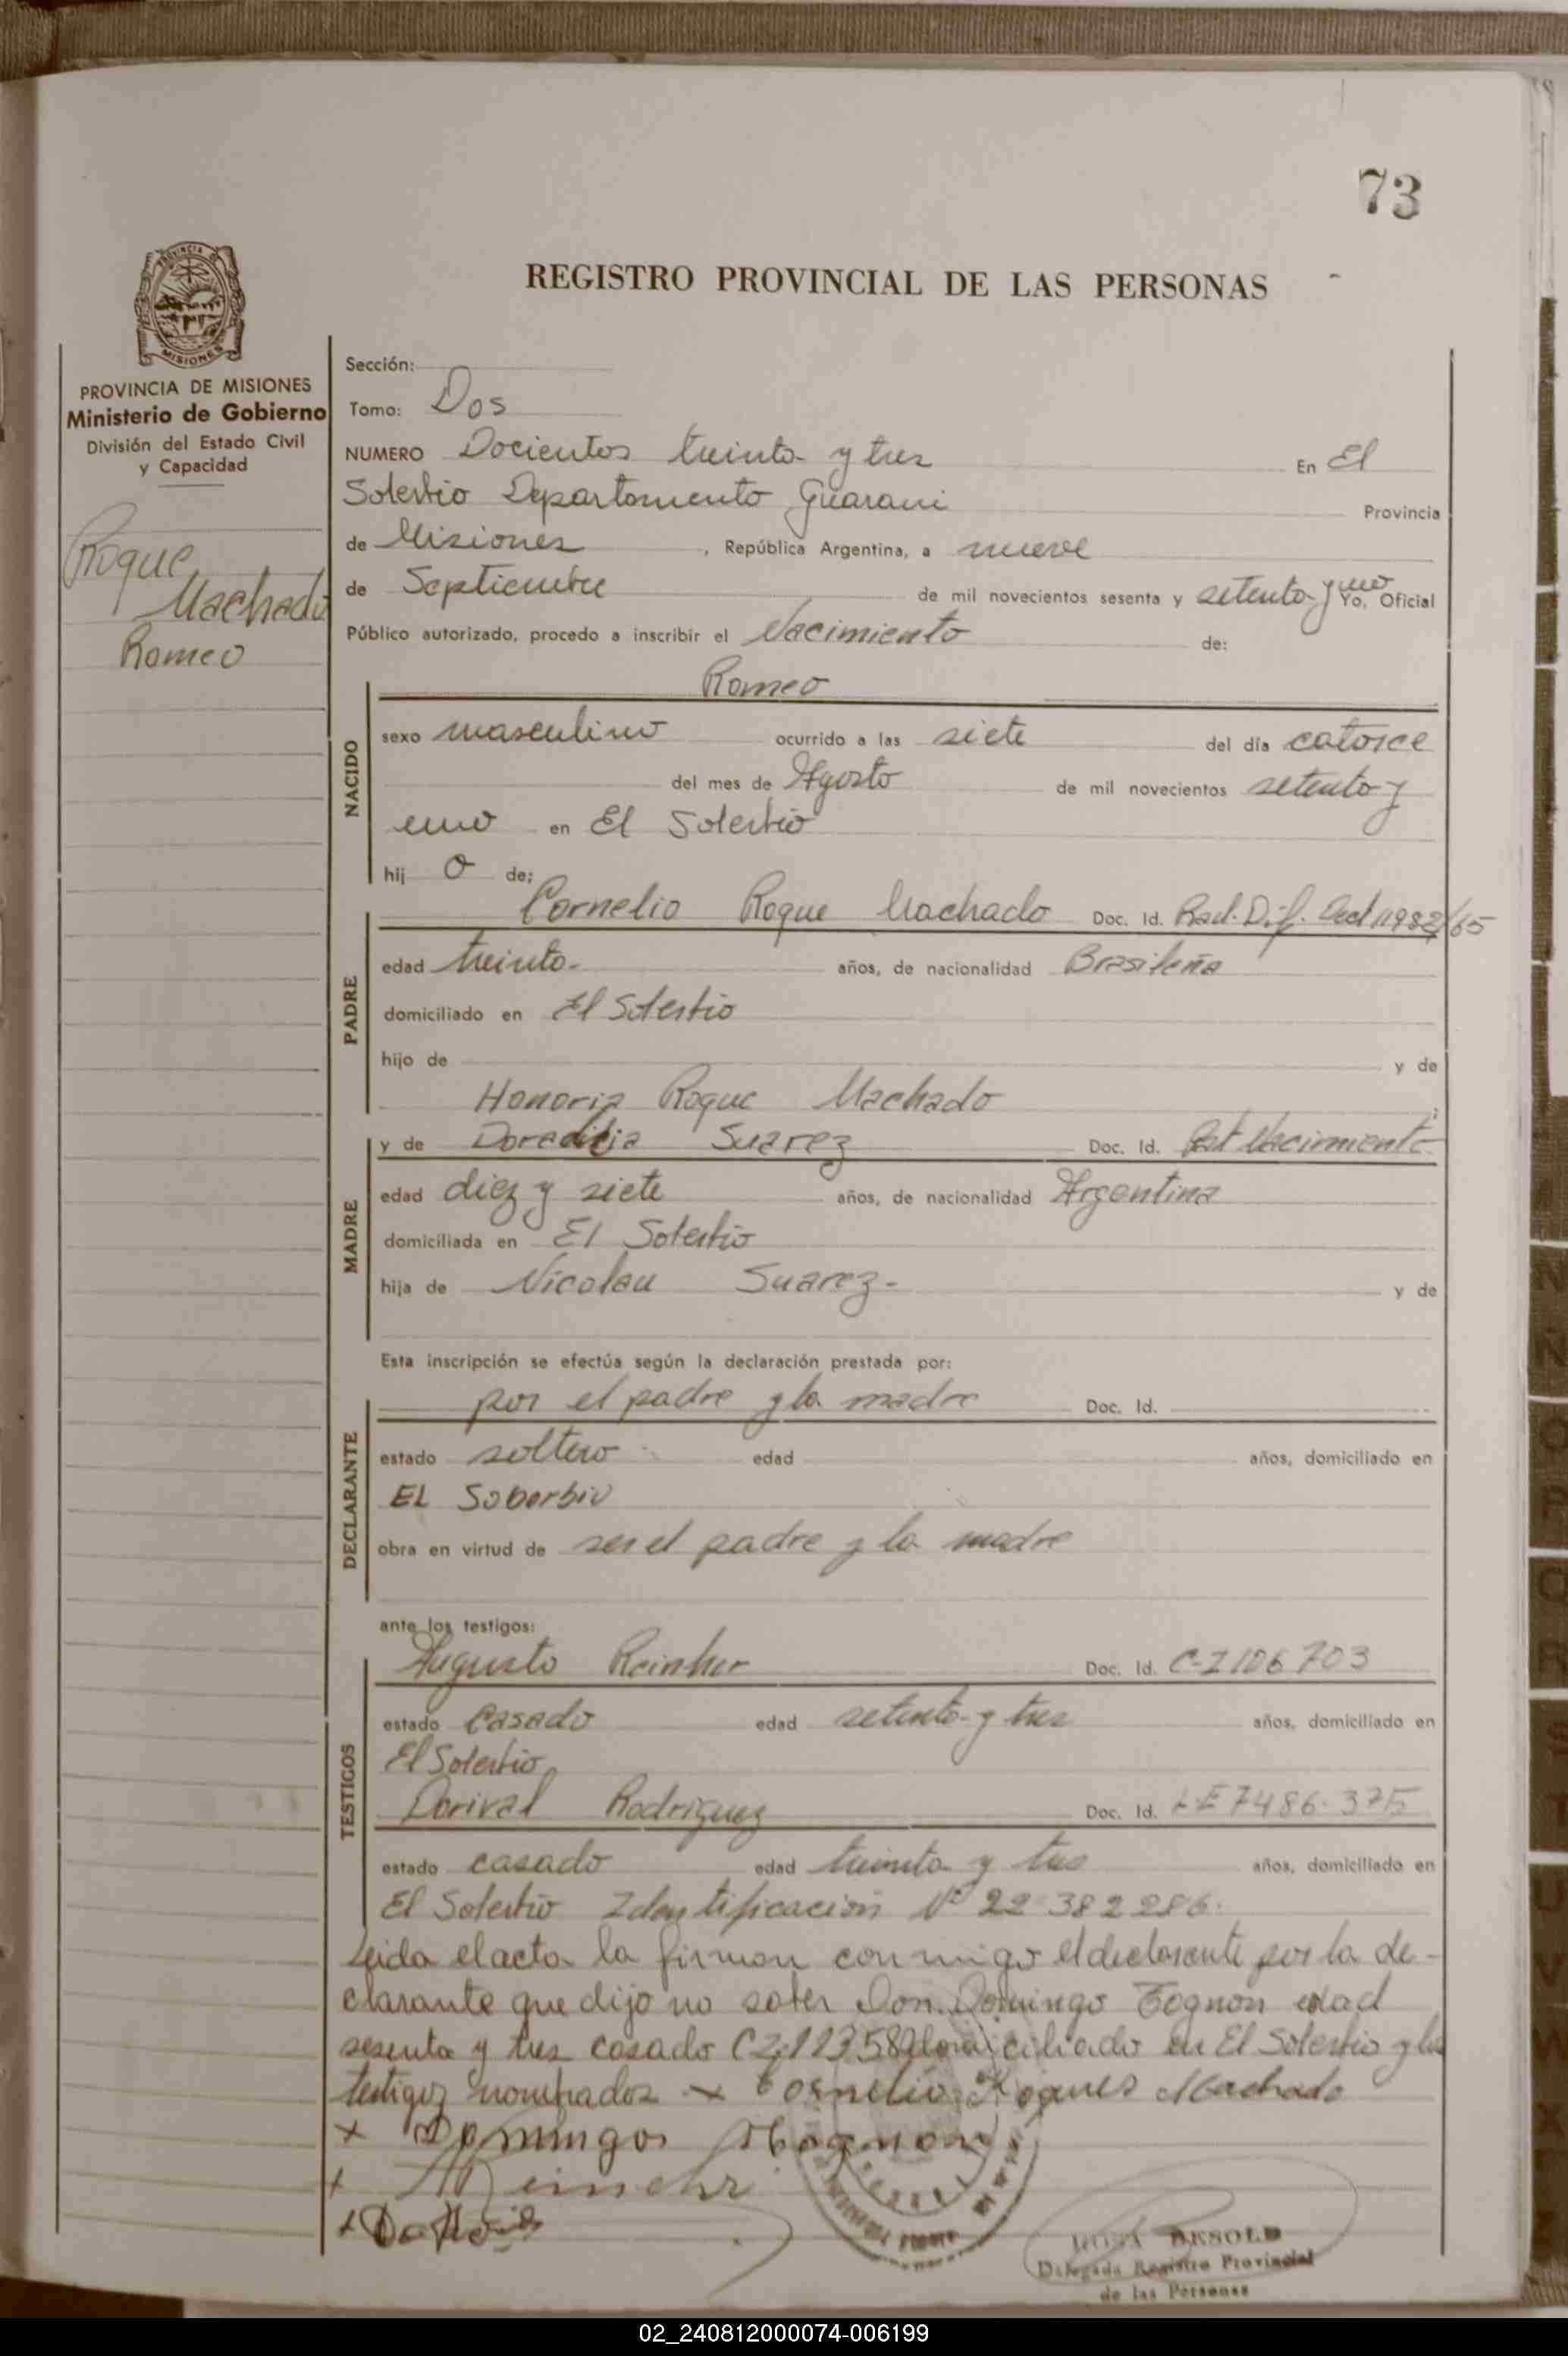 73
REGISTRO PROVINCIAL DE LAS PERSONAS
PROVINCIA DE MISIONES
Ministerio de Gobierno
División del Estado Civil
y Capacidad
Roque
Machado
Romeo
Sección:
Tomo: Dos
NUMERO Docientos treinta y tres En El
Soberbio Departamento Guarani Provincia
de Misiones, República Argentina, a nueve
de Septiembre de mil novecientos sesenta y setenta y uno Yo, Oficial
Público autorizado, procedo a inscribir el Nacimiento de:
NACIDO
Romeo
sexo masculino ocurrido a las siete del día catorce
del mes de Agosto de mil novecientos setenta y
uno en El Soberbio
hij o de:
PADRE
Cornelio Roque Machado Doc. Id. Rad. Dif. Dect 11982/65
edad treinta- años, de nacionalidad Brasileña
domiciliado en El Soberbio
hijo de y de
Honoria Roque Machado
MADRE
y de Doradilia Suarez Doc. Id. Nacimiento
edad diez y siete años, de nacionalidad Argentina
domiciliada en El Soberbio
hija de Nicolau Suarez- y de
Esta inscripción se efectúa según la declaración prestada por:
DECLARANTE
por el padre y la madre Doc. Id.
estado soltero edad años, domiciliado en
EL Soberbio
obra en virtud de ser el padre y la madre
ante los testigos:
TESTIGOS
Augusto Reinher Doc. Id. C-I 106703
estado Casado edad setenta y tres años, domiciliado en
El Soberbio
Dorival Rodriguez Doc. Id. LE 7486.375
estado casado edad treinta y tres años, domiciliado en
El Soberbio Identificación Nº 22 382 286.
Leida el acta la firman conmigo el declarante por la de-
clarante que dijo no saber Don. Domingo Tognon edad
sesenta y tres casado domiciliado en El Soberbio y los
testigos nombrados x Cornelio Roques Machado
x Domingos
+
+
ROSA BESOLD
Delegada Registro Provincial
de las Personas
02_240812000074-006199